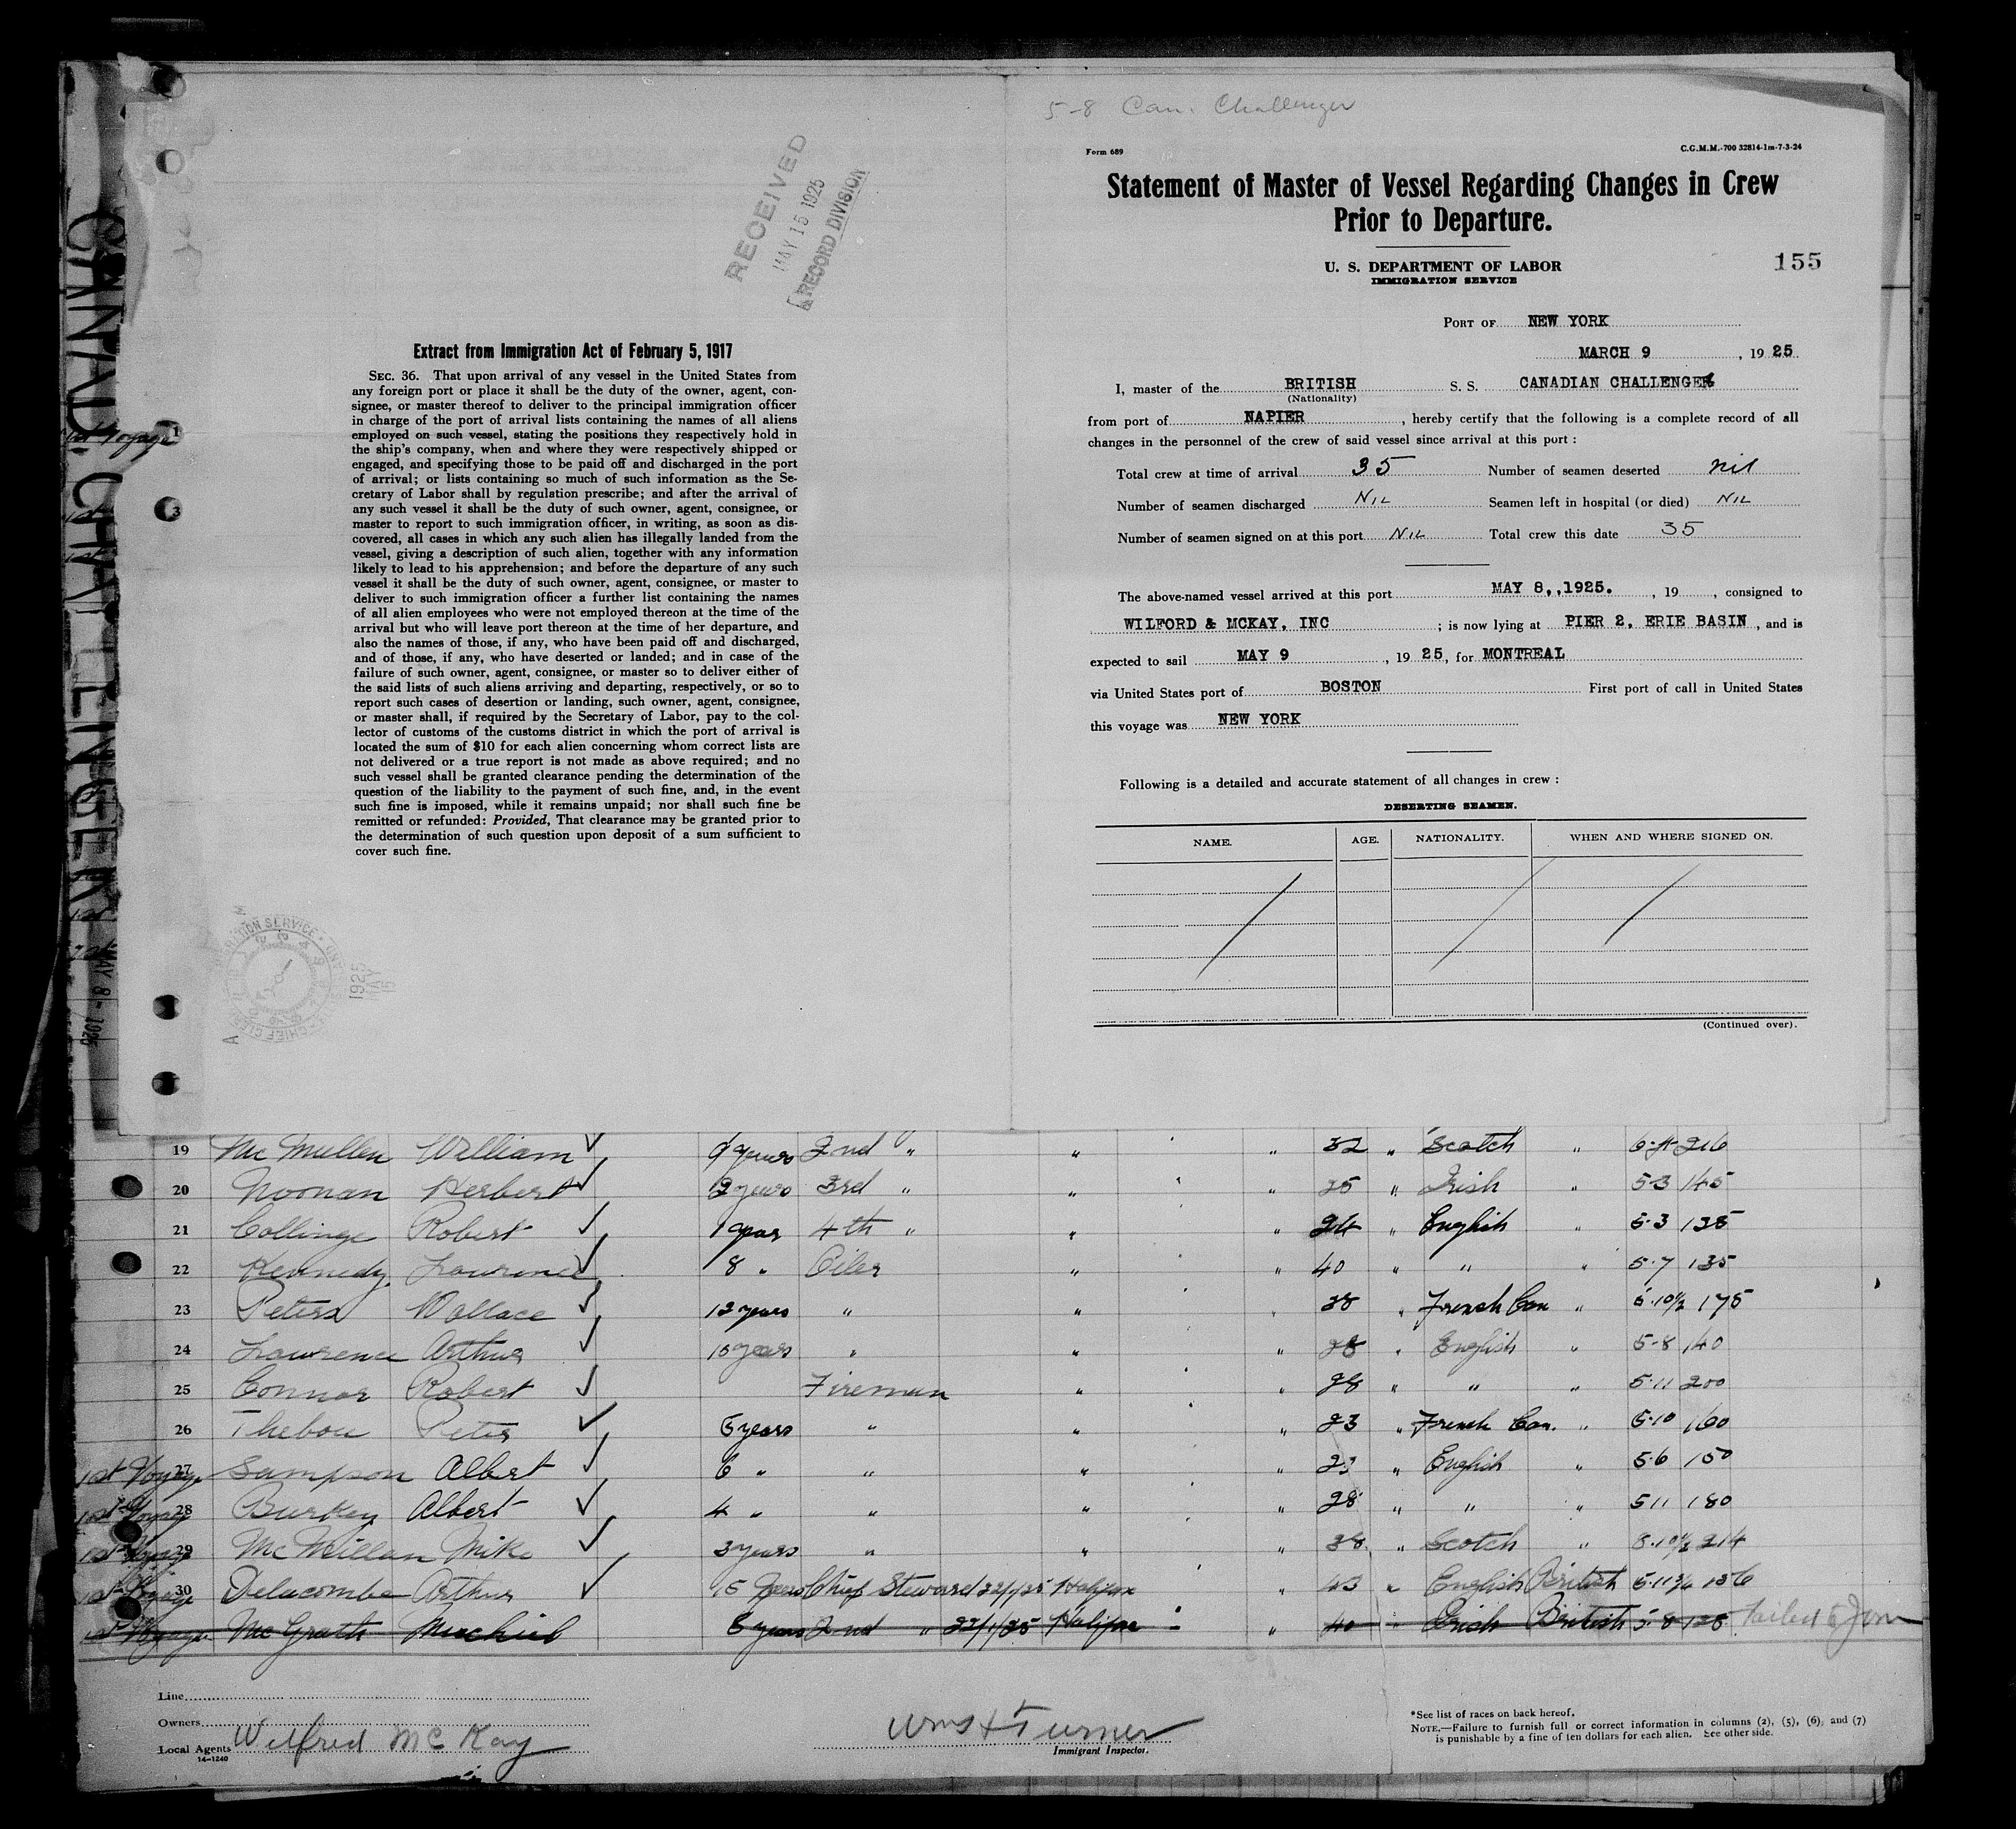 5-8 Can. Challenger
RECEIVED
MAY 15 1925
RECORD DIVISION
Extract from Immigration Act of February 5, 1917
SEC. 36. That upon arrival of any vessel in the United States from
any foreign port or place it shall be the duty of the owner, agent, con-
signee, or master thereof to deliver to the principal immigration officer
in charge of the port of arrival lists containing the names of all aliens
employed on such vessel, stating the positions they respectively hold in
the ship's company, when and where they were respectively shipped or
engaged, and specifying those to be paid off and discharged in the port
of arrival; or lists containing so much of such information as the Se-
cretary of Labor shall by regulation prescribe; and after the arrival of
any such vessel it shall be the duty of such owner, agent, consignee, or
master to report to such immigration officer, in writing, as soon as dis-
covered, all cases in which any such alien has illegally landed from the
vessel, giving a description of such alien, together with any information
likely to lead to his apprehension; and before the departure of any such
vessel it shall be the duty of such owner, agent, consignee, or master to
deliver to such immigration officer a further list containing the names
of all alien employees who were not employed thereon at the time of the
arrival but who will leave port thereon at the time of her departure, and
also the names of those, if any, who have been paid off and discharged,
and of those, if any, who have deserted or landed; and in case of the
failure of such owner, agent, consignee, or master so to deliver either of
the said lists of such aliens arriving and departing, respectively, or so to
report such cases of desertion or landing, such owner, agent, consignee,
or master shall, if required by the Secretary of Labor, pay to the col-
lector of customs of the customs district in which the port of arrival is
located the sum of $10 for each alien concerning whom correct lists are
not delivered or a true report is not made as above required; and no
such vessel shall be granted clearance pending the determination of the
question of the liability to the payment of such fine, and, in the event
such fine is imposed, while it remains unpaid; nor shall such fine be
remitted or refunded: Provided, That clearance may be granted prior to
the determination of such question upon deposit of a sum sufficient to
cover such fine.
Form 689
C.G.M.M.-700 32814-1m-7-3-24
Statement of Master of Vessel Regarding Changes in Crew
Prior to Departure.
U. S. DEPARTMENT OF LABOR
IMMIGRATION SERVICE
155
PORT OF NEW YORK
MARCH 9, 19 25
I, master of the BRITISH S. S. CANADIAN CHALLENGER
(Nationality)
from port of NAPIER, hereby certify that the following is a complete record of all
changes in the personnel of the crew of said vessel since arrival at this port :
Total crew at time of arrival 35 Number of seamen deserted nil
Number of seamen discharged NIL Seamen left in hospital (or died) NIL
Number of seamen signed on at this port NIL Total crew this date 35
The above-named vessel arrived at this port MAY 8,,1925. , 19 , consigned to
WILFORD & MCKAY, INC ; is now lying at PIER 2, ERIE BASIN , and is
expected to sail MAY 9 , 19 25, for MONTREAL
via United States port of BOSTON First port of call in United States
this voyage was NEW YORK
Following is a detailed and accurate statement of all changes in crew :
DESERTING SEAMEN.
NAME. AGE. NATIONALITY. WHEN AND WHERE SIGNED ON.
(Continued over).
CANAD. CHALLENGER
MAY 8 - 1925
19 McMullen William 9 years 2nd " " " 32 " Scotch " 216
20 Noonan Herbert 12 years 3rd " " " 25 " Irish " 5-3 145
21 Collinge Robert 1 year 4th " " " 24 " English " 5.3 125
22 Kennedy Lawrence 8 " Oiler " " 40 " " " 5.7 135
23 Peters Wallace 12 years " " " 38 " French Can " 5.10½ 175
24 Lawrence Arthur 10 years " " " 28 " English " 5-8 140
25 Connor Robert Fireman " " 28 " " " 5.11 200
26 Peter 5 years " " " 23 " French Can. " 5.10 160
1st Voyage 27 Sampson Albert 6 " " " " 23 " English " 5.6 150
1st Voyage 28 Burkey Albert 4 " " " " 28 " " " 5 11 180
1st Voyage 29 McMillan Mike 3 years " " " 38 " Scotch " 5.10½ 214
1st Voyage 30 Delacombe Arthur 15 years Chief Steward 22/1/25 Halifax " 43 " English British 5.11¾ 136
1st Voyage McGrath Michiel 6 years 2nd " 22/1/25 Halifax " 40 " Irish British 5.8 125 Failed to Join
Line
Owners
Local Agents Wilfred McKay
14-1240
Wm H Turner
Immigrant Inspector.
*See list of races on back hereof.
NOTE.—Failure to furnish full or correct information in columns (2), (5), (6), and (7)
is punishable by a fine of ten dollars for each alien. See other side.